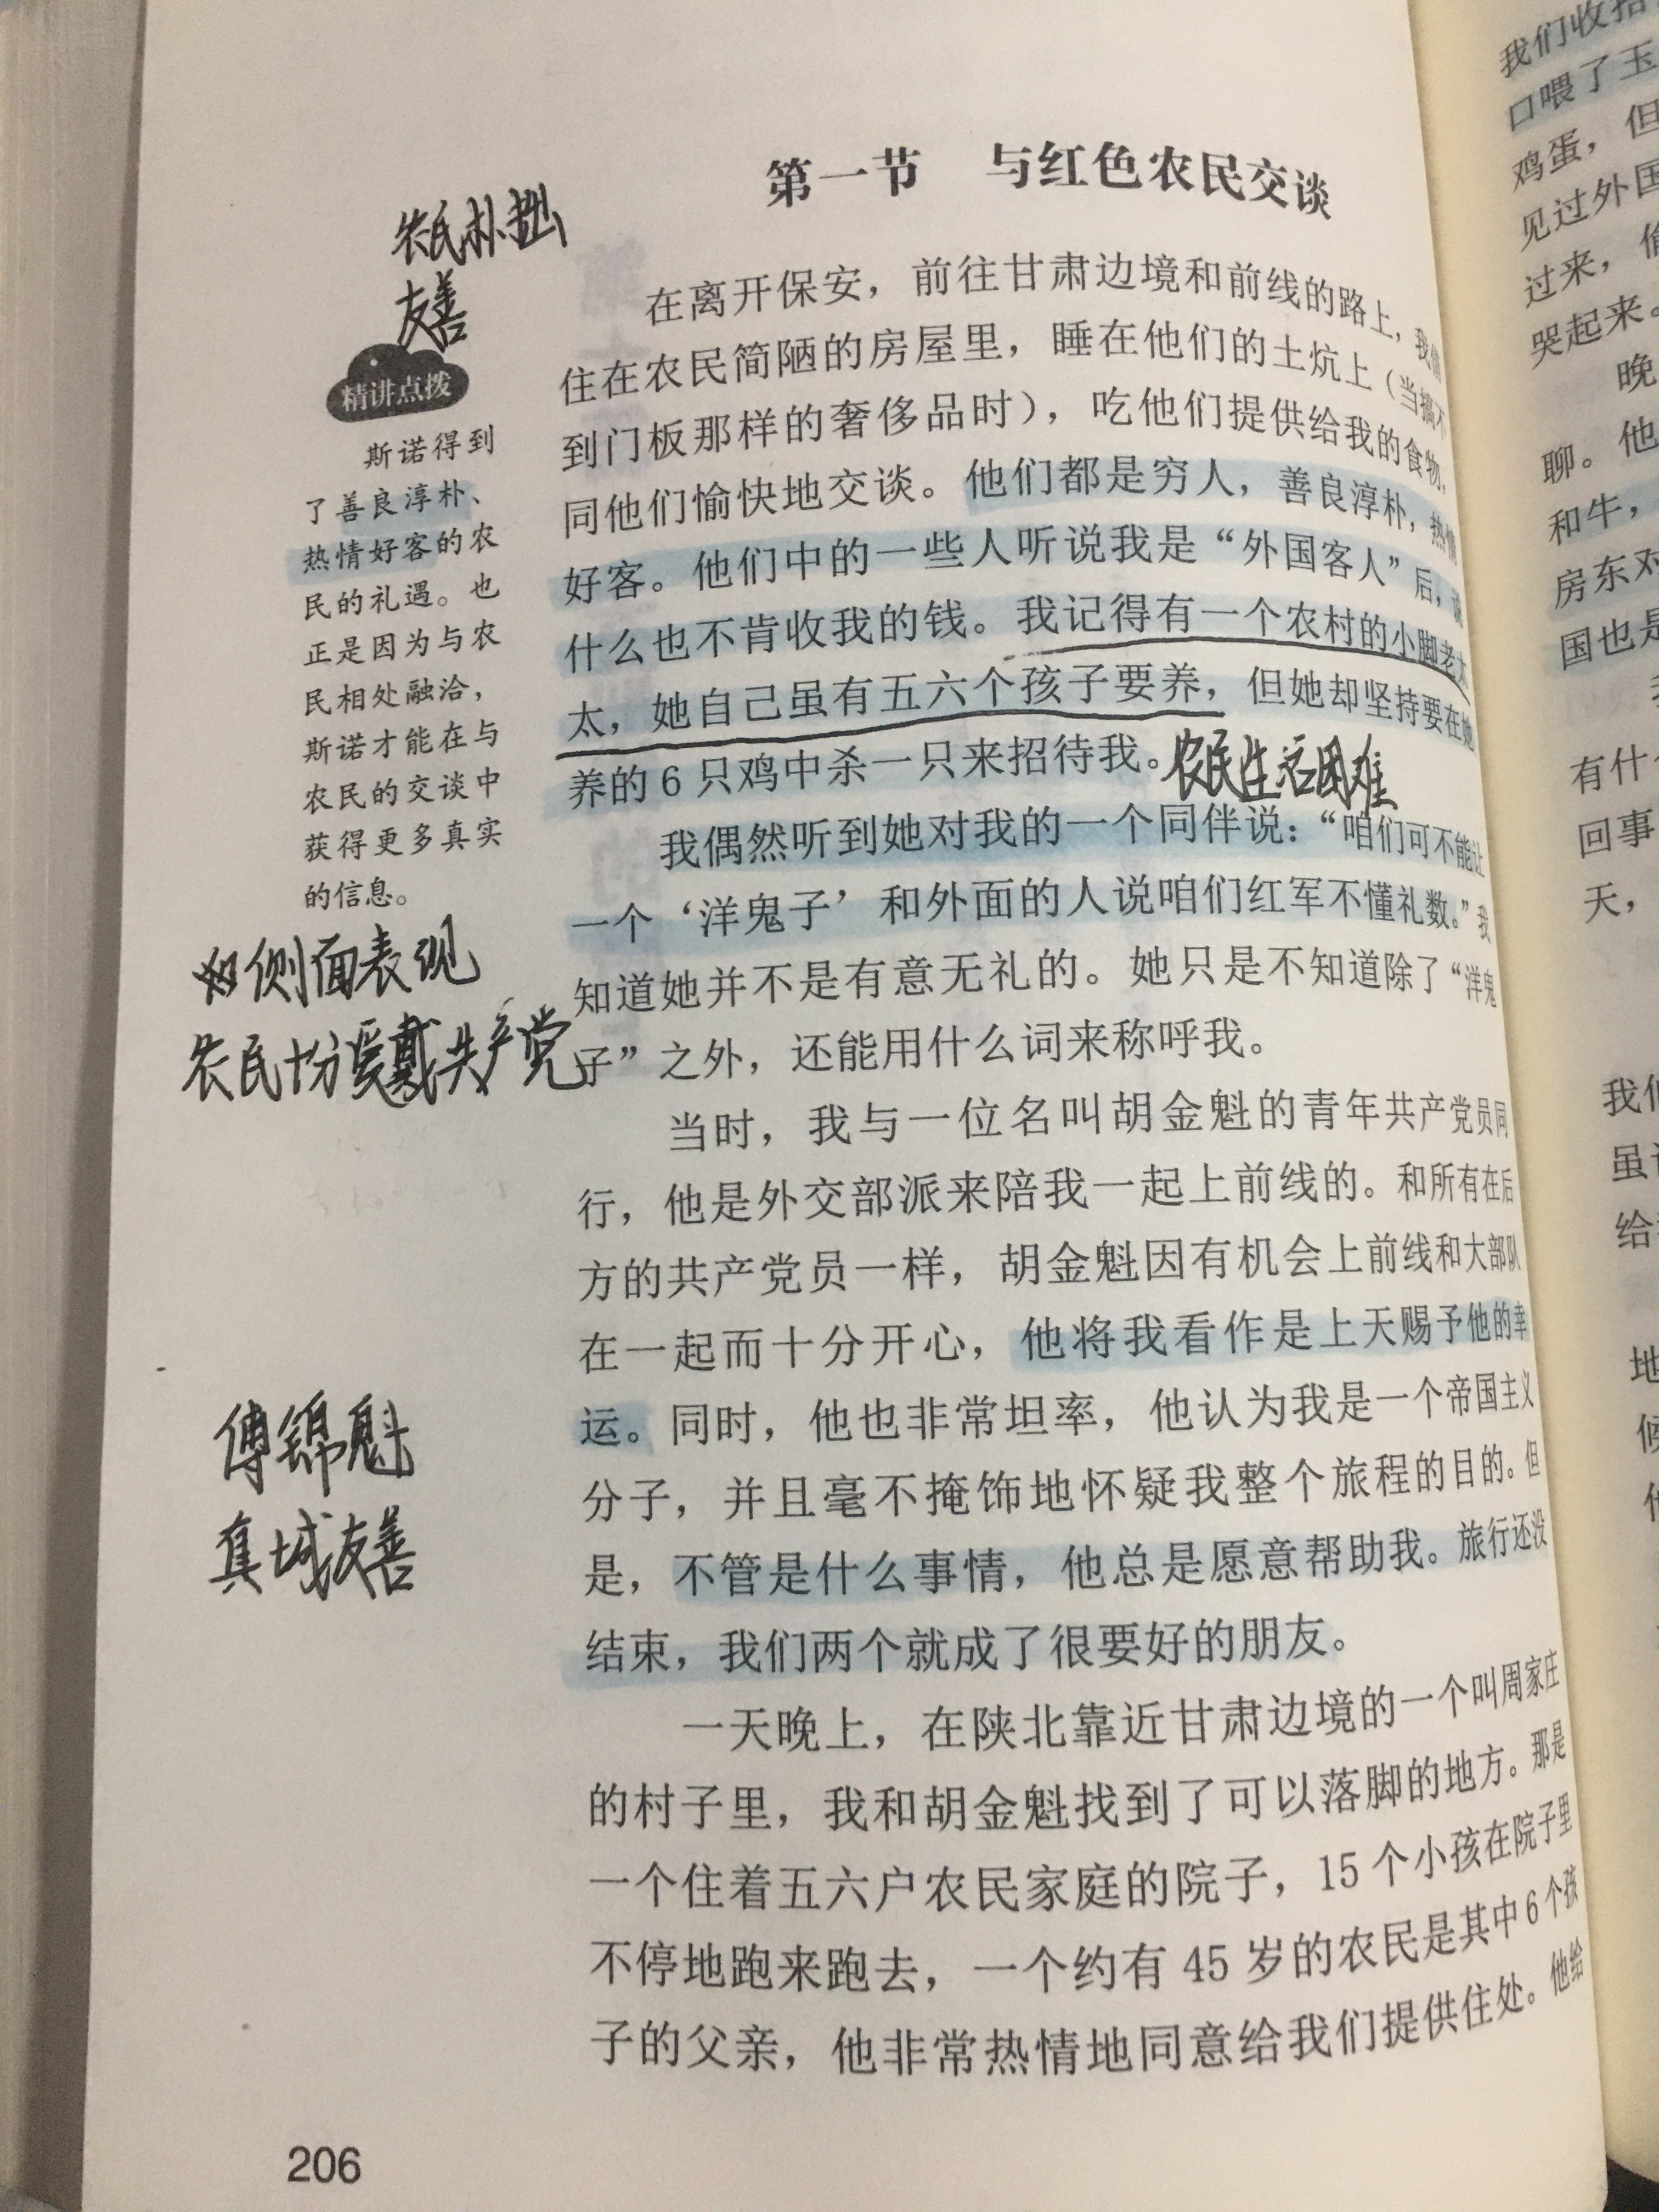 第一节 与红色农民交谈
农民朴拙
友善
精讲点拨
斯诺得到
了善良淳朴、
热情好客的农
民的礼遇。也
正是因为与农
民相处融洽，
斯诺才能在与
农民的交谈中
获得更多真实
的信息。
侧面表现
农民十分爱戴共产党
傅锦魁
真诚友善
在离开保安，前往甘肃边境和前线的路上，我们
住在农民简陋的房屋里，睡在他们的土炕上（当搞不
到门板那样的奢侈品时），吃他们提供给我的食物，
同他们愉快地交谈。他们都是穷人，善良淳朴，热情
好客。他们中的一些人听说我是“外国客人”后，说
什么也不肯收我的钱。我记得有一个农村的小脚老太
太，她自己虽有五六个孩子要养，但她却坚持要在她
养的6只鸡中杀一只来招待我。
农民生活困难
我偶然听到她对我的一个同伴说：“咱们可不能让
一个‘洋鬼子’和外面的人说咱们红军不懂礼数。”我
知道她并不是有意无礼的。她只是不知道除了“洋鬼
子”之外，还能用什么词来称呼我。
当时，我与一位名叫胡金魁的青年共产党员同
行，他是外交部派来陪我一起上前线的。和所有在后
方的共产党员一样，胡金魁因有机会上前线和大部队
在一起而十分开心，他将我看作是上天赐予他的幸
运。同时，他也非常坦率，他认为我是一个帝国主义
分子，并且毫不掩饰地怀疑我整个旅程的目的。但
是，不管是什么事情，他总是愿意帮助我。旅行还没
结束，我们两个就成了很要好的朋友。
一天晚上，在陕北靠近甘肃边境的一个叫周家庄
的村子里，我和胡金魁找到了可以落脚的地方。那是
一个住着五六户农民家庭的院子，15个小孩在院子里
不停地跑来跑去，一个约有45岁的农民是其中6个孩
子的父亲，他非常热情地同意给我们提供住处。他给
206
我们收拾
口喂了玉
鸡蛋，但
见过外国
过来，偷
哭起来。
晚
聊。他
和牛，
房东对
国也是
有什么
回事
天，
我们
虽说
给
地
候